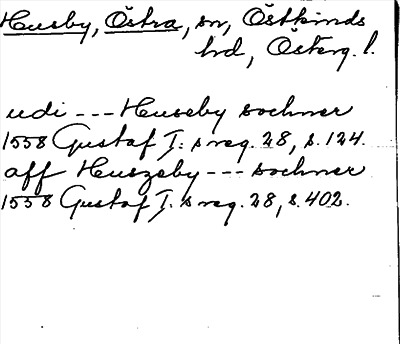 Husby, Östra, sn, Östkinds
hrd, Österg. l.
udi --- Huseby sochner
1558 Gustaf I:s reg. 28, s. 124.
aff Huszeby --- sochner
1558 Gustaf I:s reg. 28, s. 402.